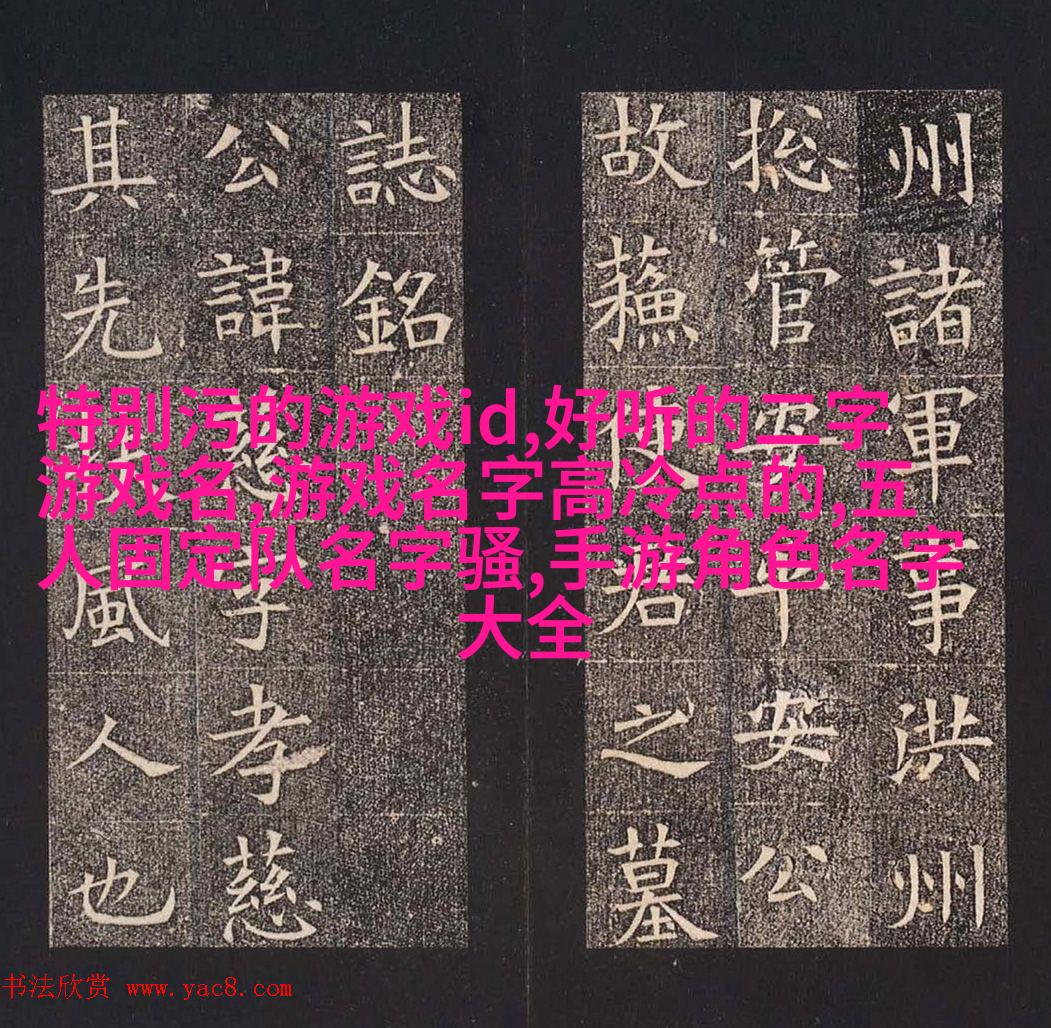 州諸軍事洪州
捴管安平安公
故蘓使君之墓
誌銘
公諱慈字孝慈
其先扶風人也
特别污的游戏id,好听的二字
游戏名,游戏名字高冷点的,五
人固定队名字骚,手游角色名字
大全
书法欣赏 www.yac8.com